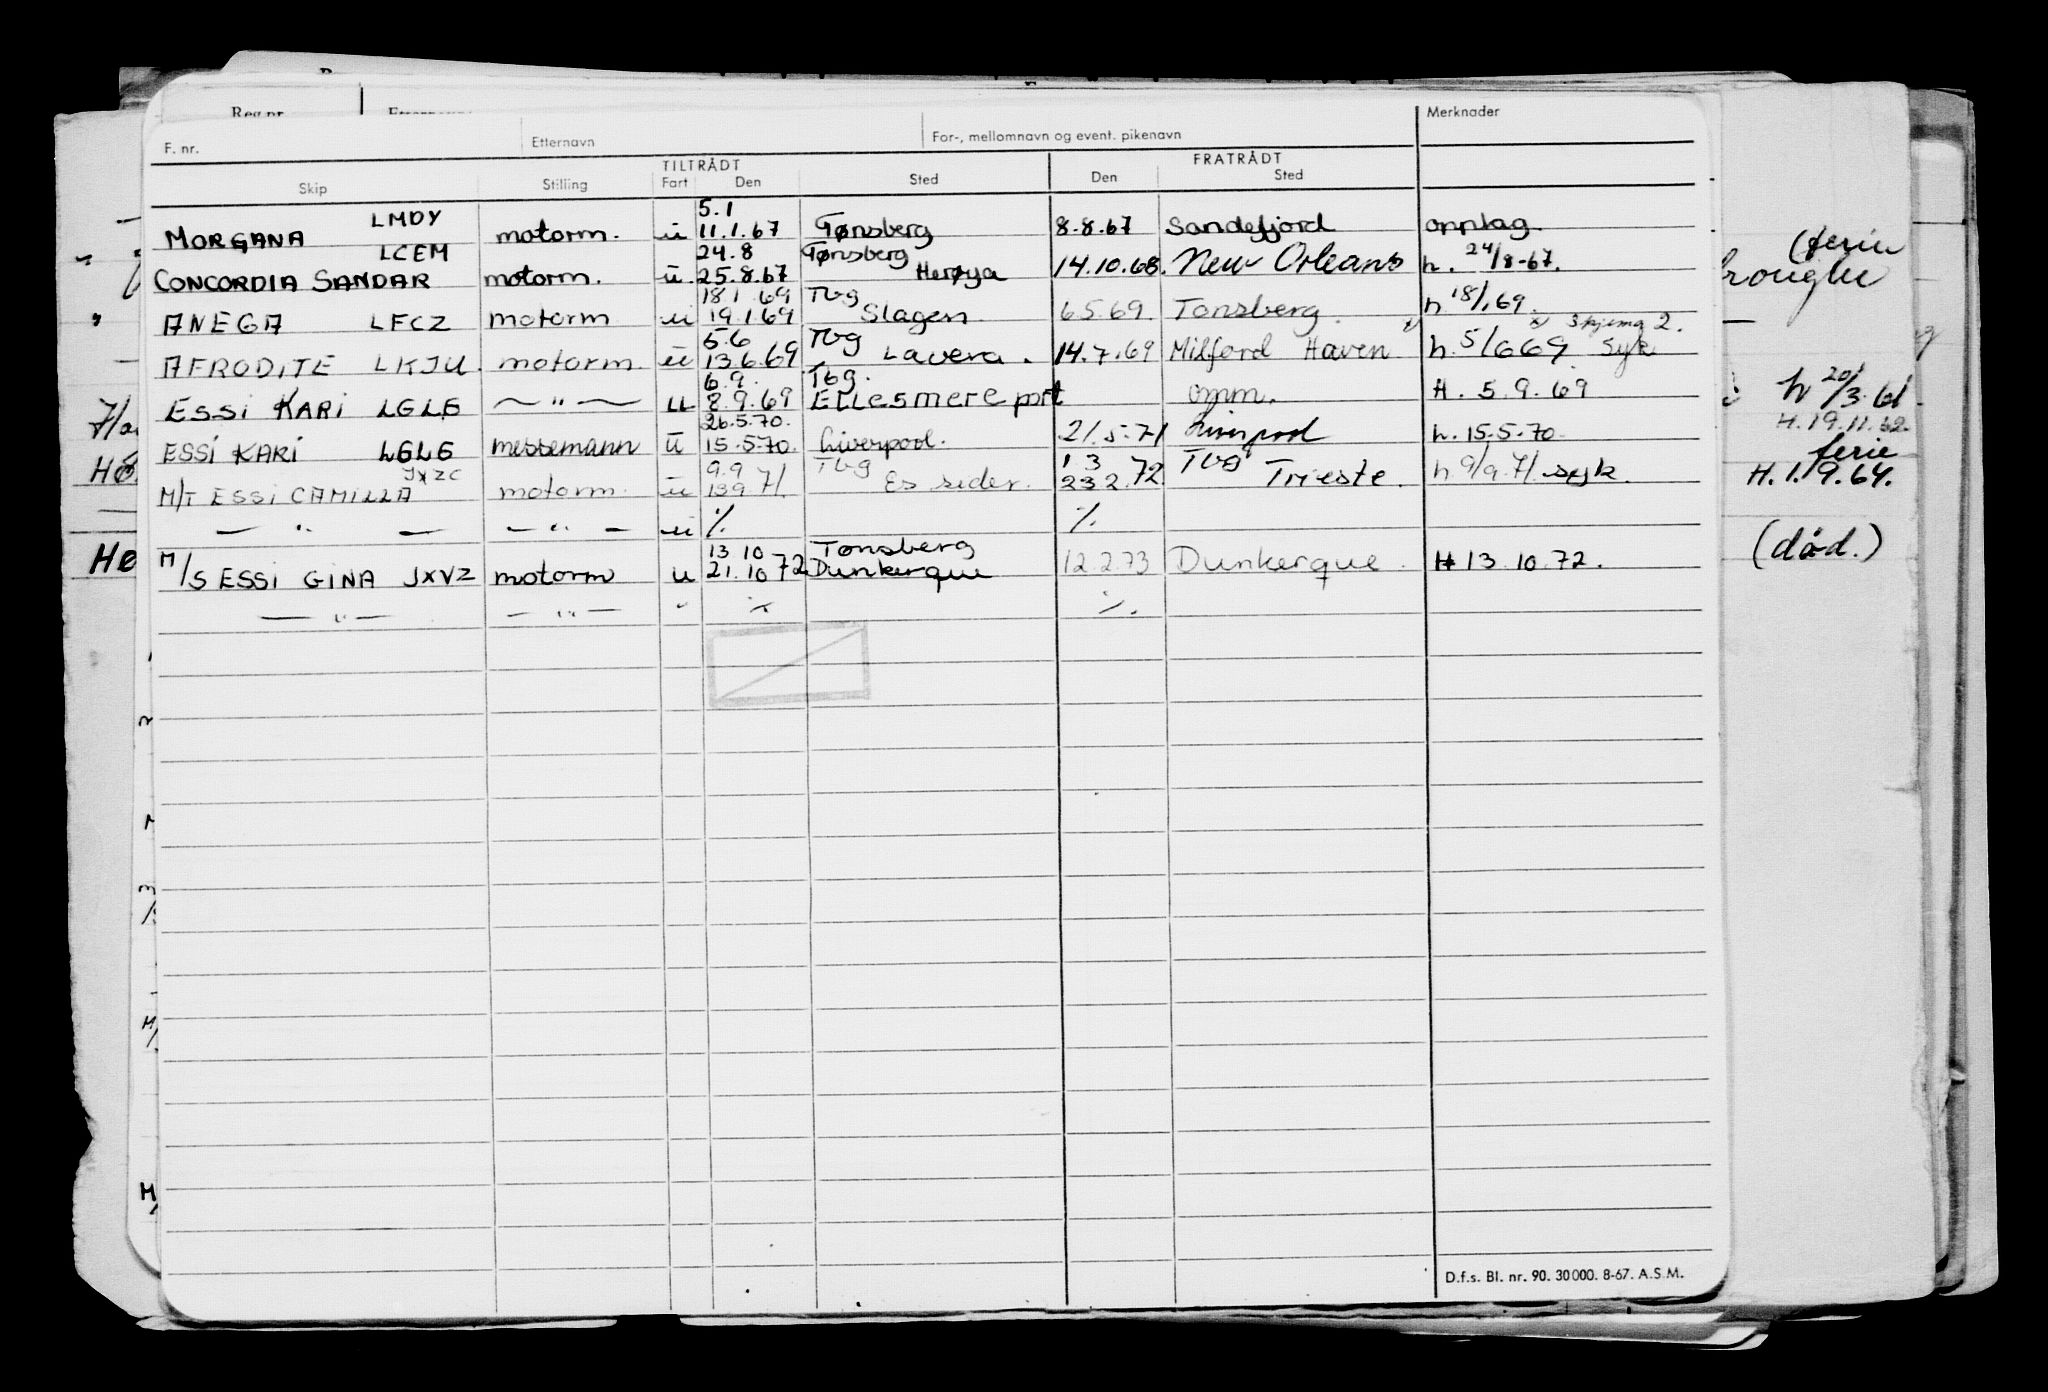 F. nr. Etternavn For-, mellomnavn og event. pikenavn Merknader
TILTRÅDT FRATRÅDT
Skip Stilling Fart Den Sted Den Sted
5.1
MORGANA LMDY motorm. u 11.1.67 Tønsberg 8.8.67 Sandefjord opplag.
24.8 Tønsberg
CONCORDIA SANDAR LCEM motorm. u. 25.8.67 Herøya 14.10.68. New Orleans h. 24/8-67.
18.1 69 Tbg
ANEGA LFCZ motorm u 19.1.69 Slagen 6.5.69. Tønsberg. h. 18/1.69.
5.6 Tbg x skjema 2.
AFRODITE LKJU. motorm. u 13.6.69 Lavera. 14.7.69 Milford Haven x h. 5/6 69 Syk
6.9. Tbg.
ESSI KARI LGLG — " — u 8.9.69 Ellesmere port omm. H. 5.9.69
26.5.70.
ESSI KARI LGLG messemann u 15.5.70. Liverpool. 21.5.71 Liverpool h. 15.5.70
9.9 Tbg 1 3 Tbg
M/T ESSI CAMILLA JXZC motorm. u 13 9 71. Es sider. 23 2. 72. Trieste. h. 9/9.71. syk.
— " — — " — u % %
13 10 Tønsberg
M/S ESSI GINA JXVZ motorm u 21.10 72 Dunkerque 12.2.73 Dunkerque. H 13.10.72.
— " — — " — " % %.
D.f.s. Bl. nr. 90. 30 000. 8-67. A.S.M.
Reg.nr.
(ferie
h 20/3.61
H. 19.11.62.
ferie
H. 1.9.64.
(død.)